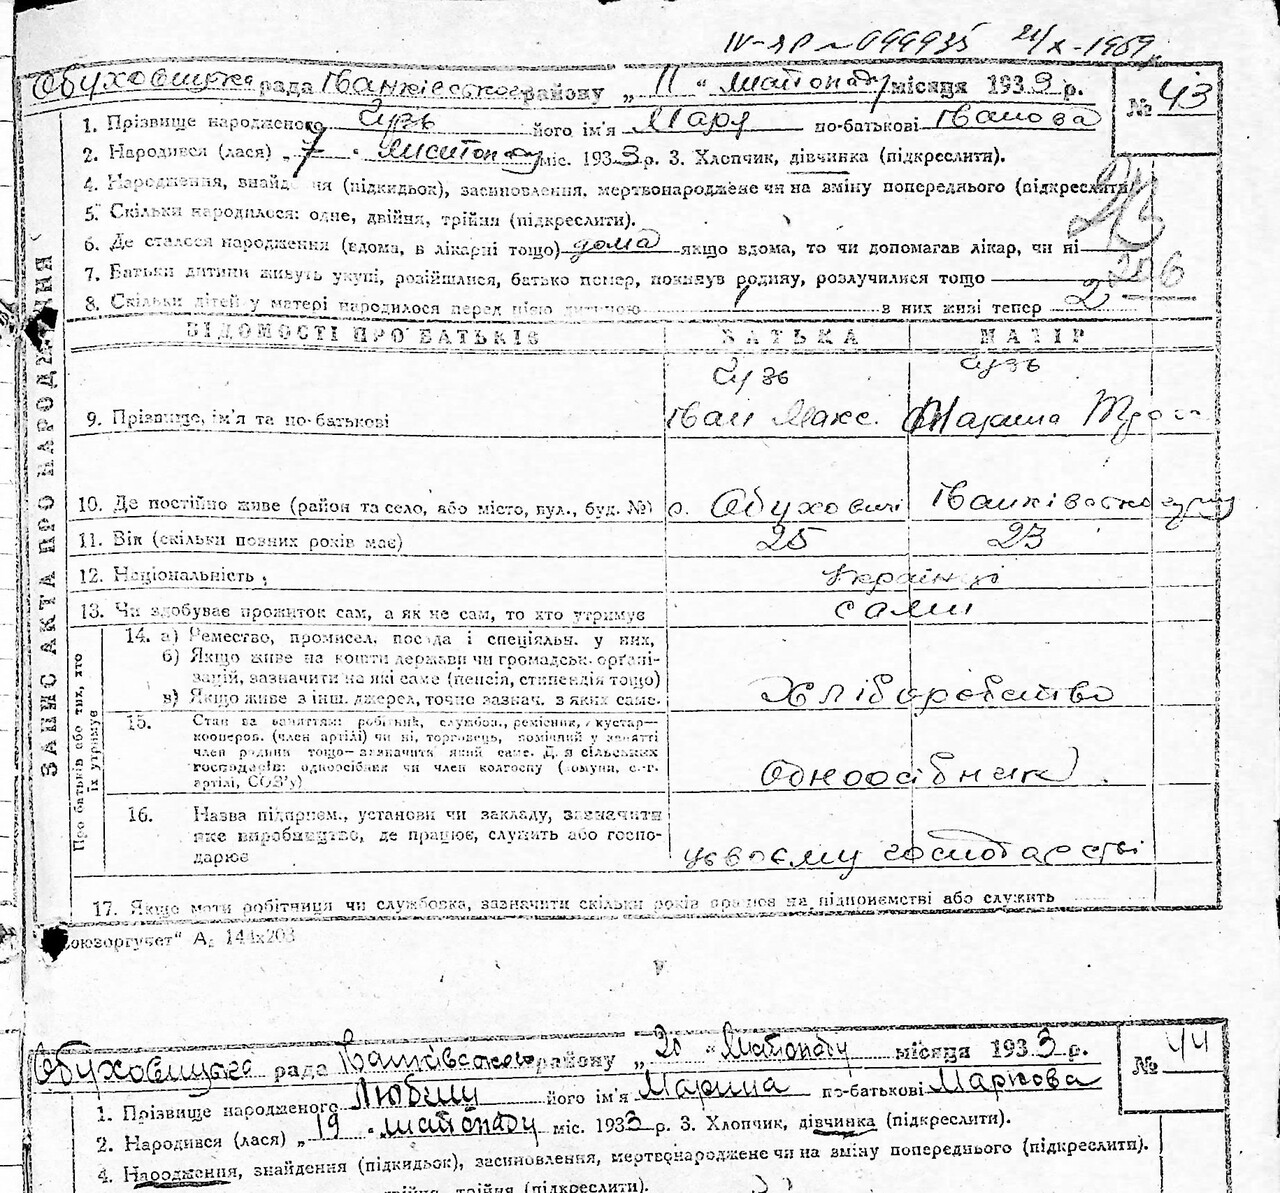 IV-ЯР № 099935 21/X-1969
Обуховицька рада Іванківського району „11“ листопаду місяця 1933 р.
№ 43
1. Прізвище народженого Гузь його ім'я Маря по-батькові Іванова
2. Народився (лася) „7“ листопаду міс. 1933 р. 3. Хлопчик, дівчинка (підкреслити).
4. Народження, знайдення (підкидьок), засиновлення, мертвонароджене чи на зміну попереднього (підкреслити)
5. Скільки народилося: одне, двійня, трійня (підкреслити).
6. Де сталося народження (вдома, в лікарні тощо) дома якщо вдома, то чи допомагав лікар, чи ні
206
7. Батьки дитини живуть укупі, розійшлися, батько помер, покинув родину, розлучилися тощо
8. Скільки дітей у матері народилося перед цією дитиною 1 з них живі тепер 2
ВІДОМОСТІ ПРО БАТЬКІВ БАТЬКА МАТІР
Гузь Гузь
9. Прізвище, ім'я та по-батькові Іван Макс.
10. Де постійно живе (район та село, або місто, вул., буд. №) с. Обуховичі Іванківського
11. Вік (скільки повних років має) 25 23
12. Національність українці
13. Чи здобуває прожиток сам, а як не сам, то хто утримує сами
ЗАПИС АКТА ПРО НАРОДЖЕННЯ
Про батьків або тих, хто їх утримує
14. а) Ремество, промисел, посада і спеціяльн. у них,
б) Якщо живе на кошти держави чи громадськ. органі-
зацій, зазначити на які саме (пенсія, стипендія тощо)
в) Якщо живе з інш. джерел, точно зазнач. з яких саме.
Хліборобство
15. Стан за заняттям: робітник, службов., ремісник, кустар—
коопероз. (член артілі) чи ні, торговець, помічний у занятті
член родини тощо—зазначити який саме. Для сільських
господарів: одноосібник чи член колгоспу (комуни, с.-г.
артілі, СОЗ'у)
Одноосібник
16. Назва підприєм., установи чи закладу, зазначити
яке виробництво, де працює, служить або госпо-
дарює
у своєму господарстві
17. Якщо мати робітниця чи службовка, зазначити скільки років працює на підприємстві або служить
„Союзоргучет“ А₅ 144х203
Обуховицька рада Іванківського району „20“ листопаду місяця 1933 р.
№ 44
1. Прізвище народженого Любиш його ім'я Марина по-батькові Маркова
2. Народився (лася) „19“ листопаду міс. 1933 р. 3. Хлопчик, дівчинка (підкреслити).
4. Народження, знайдення (підкидьок), засиновлення, мертвонароджене чи на зміну попереднього (підкреслити).
двійня, трійня (підкреслити).